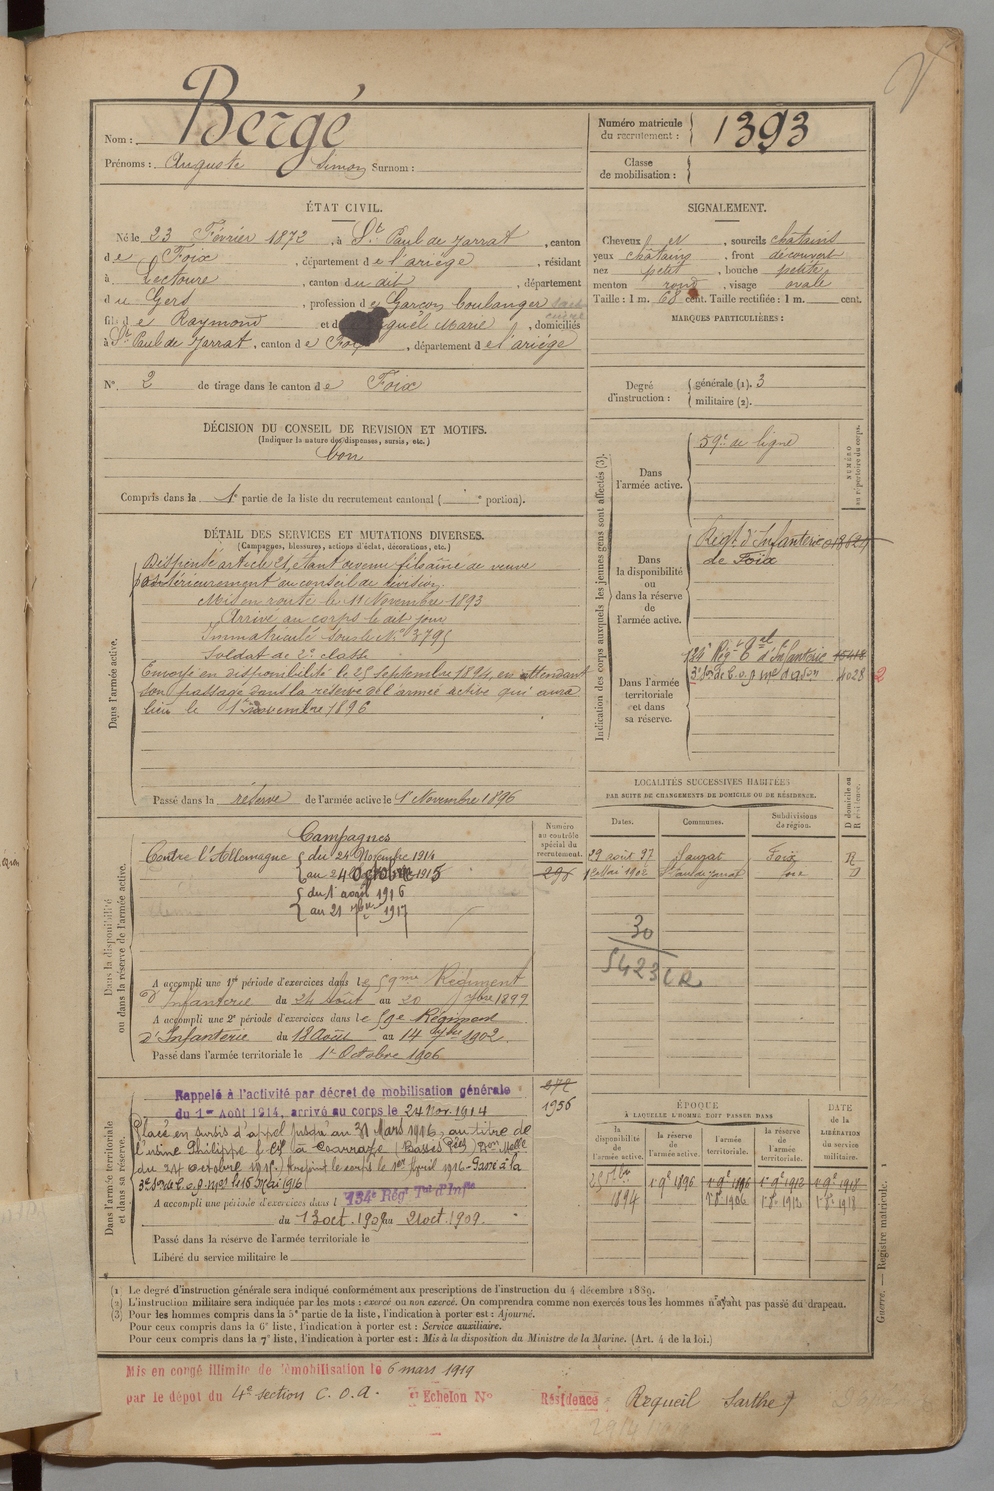 Nom : Bergé
Prénoms : Auguste Simon Surnom :
Numéro matricule du recrutement : 1393
Classe de mobilisation :
ÉTAT CIVIL.
Né le 23 Février 1872, à St Paul de Jarrat, canton
de Foix, département de l'ariège, résidant
à Lectoure, canton du dit, département
du Gers, profession de Garçon boulanger
fils de Raymond et d Marie, domiciliés
à St Paul de Jarrat, canton de Foix, département de l'ariège
N° 2 de tirage dans le canton de Foix
SIGNALEMENT.
Cheveux et, sourcils châtains
yeux châtains, front découvert
nez petit, bouche petite
menton rond, visage ovale
Taille : 1 m. 68 cent. Taille rectifiée : 1 m. cent.
MARQUES PARTICULIÈRES :
Degré d'instruction : générale (1). 3
militaire (2).
DÉCISION DU CONSEIL DE REVISION ET MOTIFS.
(Indiquer la nature des dispenses, sursis, etc.)
bon
Compris dans la 1e partie de la liste du recrutement cantonal ( e portion).
DÉTAIL DES SERVICES ET MUTATIONS DIVERSES.
(Campagnes, blessures, actions d'éclat, décorations, etc.)
Dans l'armée active.
Dispensé article 21, étant devenu fils aîné de veuve
postérieurement au conseil de révision.
Mis en route le 11 Novembre 1893
Arrivé au corps le dit jour
Immatriculé sous le N° 3795
Soldat de 2e classe
Envoyé en disponibilité le 25 Septembre 1894, en attendant
son passage dans la réserve de l'armée active qui aura
lieu le 1er Novembre 1896
Passé dans la réserve de l'armée active le 1er Novembre 1896
Indication des corps auxquels les jeunes gens sont affectés (3).
NUMÉRO au répertoire du corps.
Dans l'armée active.
59e de ligne
Dans la disponibilité ou dans la réserve de l'armée active.
Régt d'Infanterie
de Foix
Dans l'armée territoriale et dans sa réserve.
134e Régt d'Infanterie 15418
3e Son de C.o.a 4028 2
LOCALITÉS SUCCESSIVES HABITÉES
PAR SUITE DE CHANGEMENTS DE DOMICILE OU DE RÉSIDENCE.
Dates. Communes. Subdivisions de région. D domicile ou R résidence.
29 août 97 Saurat Foix R
1er Mai 1902 St Paul de Jarrat D
30
5423 CR
Dans la disponibilité ou dans la réserve de l'armée active.
Numéro au contrôle spécial du recrutement.
296
Campagnes
Contre l'Allemagne du 24 Novembre 1914
au 24 Octobre 1915
du 1er avril 1916
au 21 9bre 1917
A accompli une 1re période d'exercices dans le 59me Régiment
d'Infanterie du 24 août au 20 7bre 1899
A accompli une 2e période d'exercices dans le 59e Régiment
d'Infanterie du 18 Août au 14 7bre 1902.
Passé dans l'armée territoriale le 1er Octobre 1906
Dans l'armée territoriale et dans sa réserve.
1956
Rappelé à l'activité par décret de mobilisation générale
du 1er Août 1914, arrivé au corps le 24 Nov. 1914
Placé en sursis d'appel jusqu'au 31 Mars 1916, au titre de
l'usine Philippe à Coarraze (Basses Pées) Don Melle
du 24 octobre 1915. Rejoint le corps le 1er Avril 1916 - Passé à la
3e Son de C.o.a le 16 mai 1916
A accompli une période d'exercices dans l 134e Régt Tal d'Infie
du 13 oct. 1909 au 21 oct. 1909.
Passé dans la réserve de l'armée territoriale le
Libéré du service militaire le
ÉPOQUE
À LAQUELLE L'HOMME DOIT PASSER DANS
DATE DE LA LIBÉRATION du service militaire.
la disponibilité de l'armée active. la réserve de l'armée active. l'armée territoriale. la réserve de l'armée territoriale.
25 7bre 1894 1er 9e 1896 1er 9e 1896 1er 9e 1912 1er 9e 1918
1er 8e 1906 1er 8e 1912 1er 8e 1918
(1) Le degré d'instruction générale sera indiqué conformément aux prescriptions de l'instruction du 4 décembre 1889.
(2) L'instruction militaire sera indiquée par les mots : exercé ou non exercé. On comprendra comme non exercés tous les hommes n'ayant pas passé au drapeau.
(3) Pour les hommes compris dans la 5e partie de la liste, l'indication à porter est : Ajourné.
Pour ceux compris dans la 6e liste, l'indication à porter est : Service auxiliaire.
Pour ceux compris dans la 7e liste, l'indication à porter est : Mis à la disposition du Ministre de la Marine. (Art. 4 de la loi.)
Guerre. — Registre matricule. 1
Mis en congé illimité de démobilisation le 6 mars 1919
par le dépot du 4e section C.O.A. Echelon N° Résidence : Requeil Sarthe